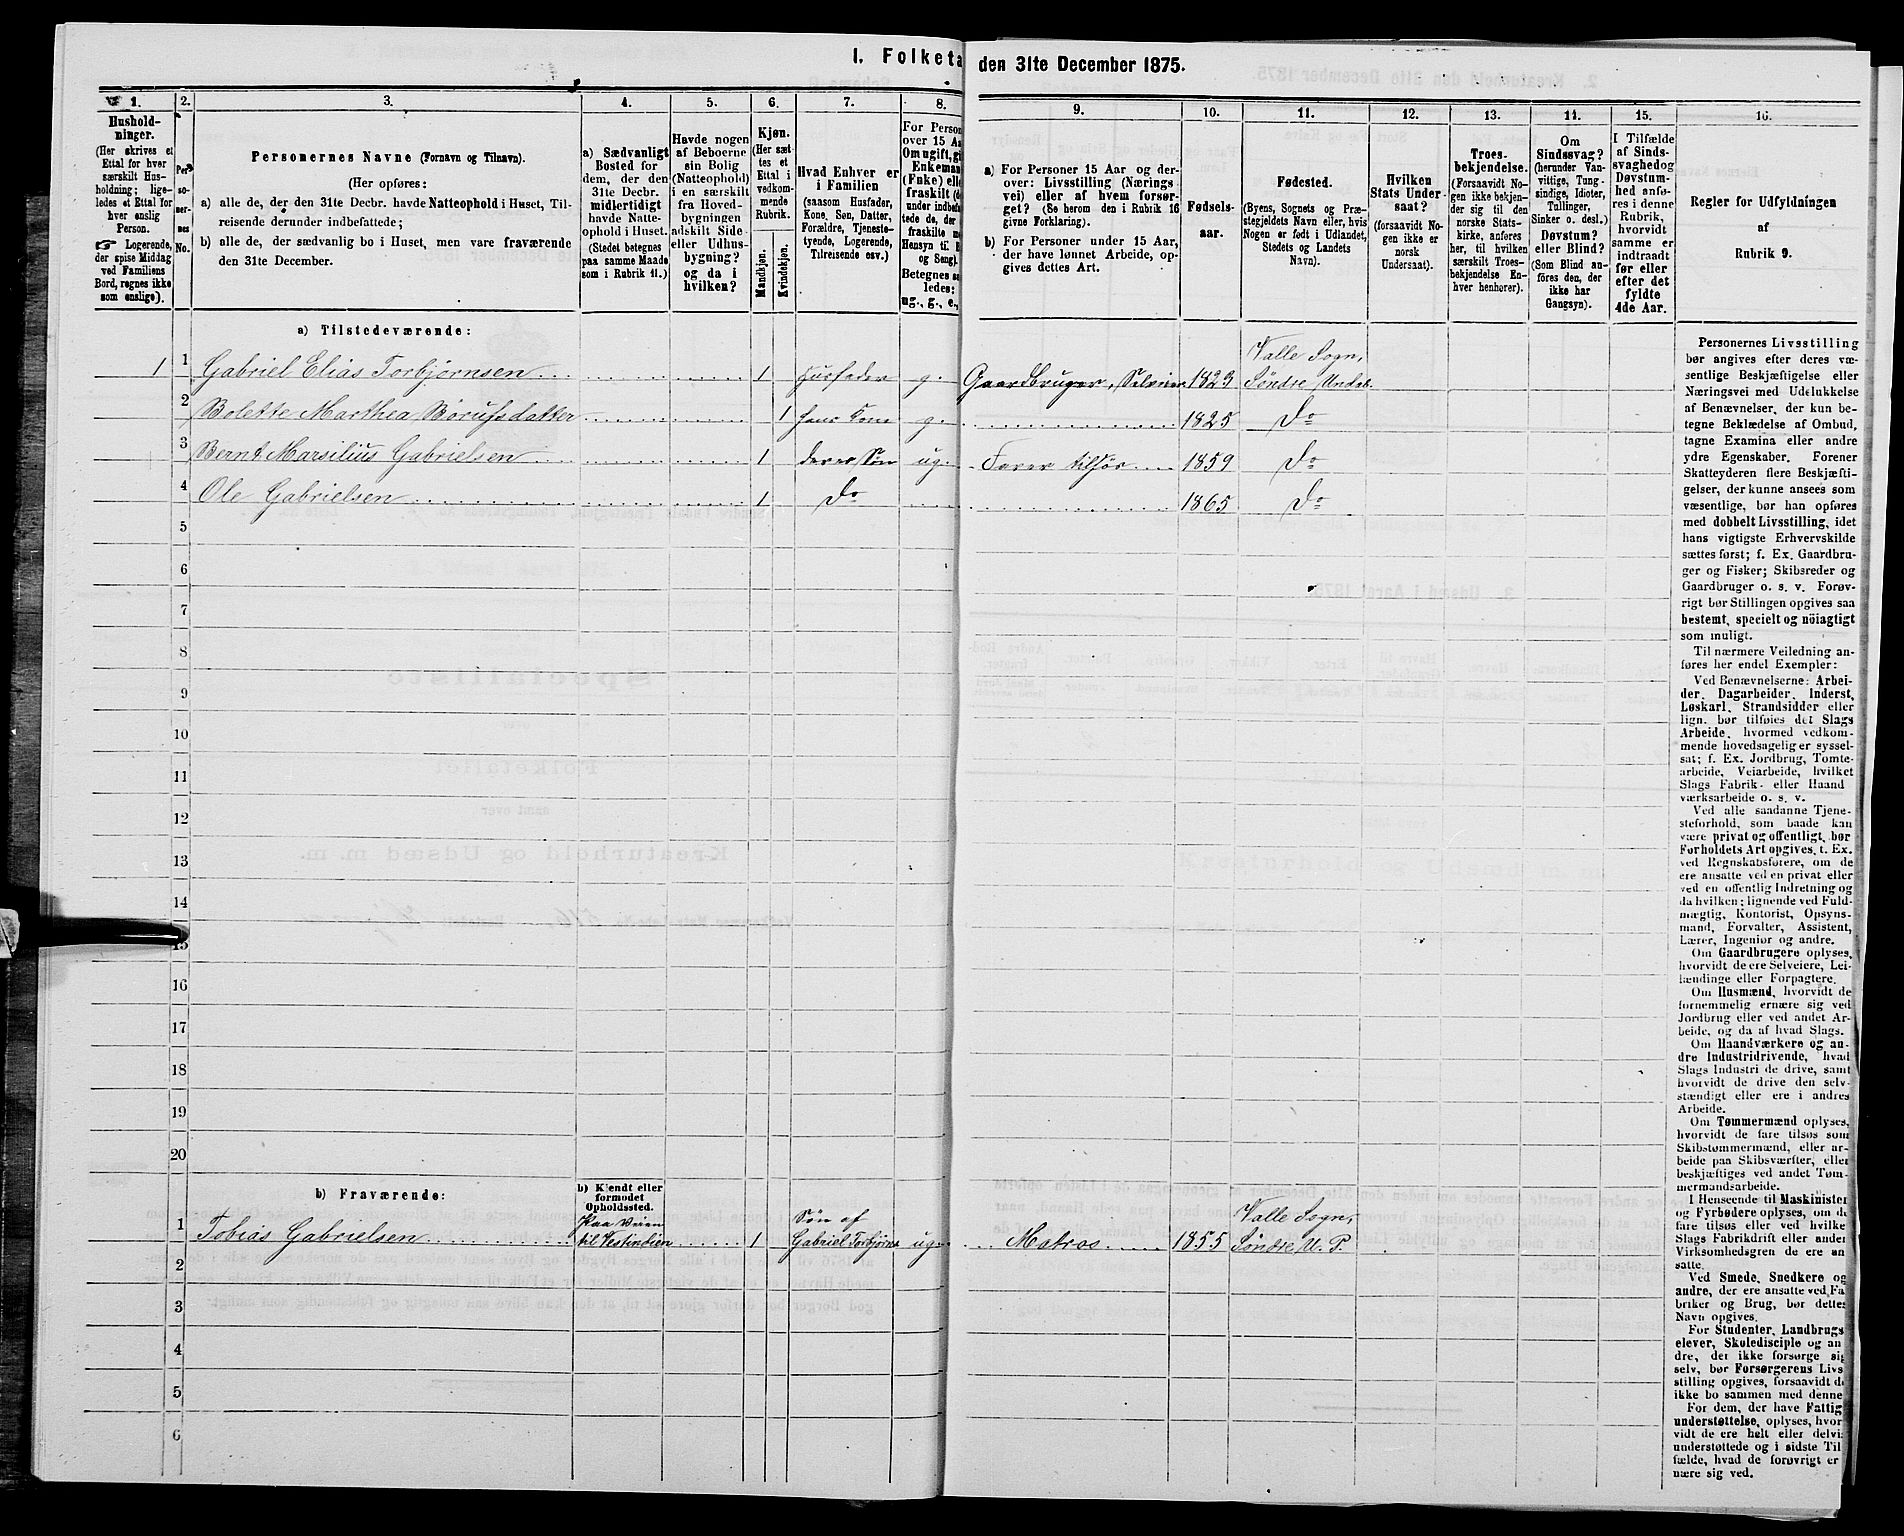 I. Folketa
den 31te December 1875.
1.
2.
3.
4.
5.
6.
7.
8.
9.
10.
11.
12.
13.
14.
15.
16.
Hushold-
ninger.
(Her skrives et
Ettal for hver
særskilt Hus-
holdning; lige-
ledes et Ettal for
hver enslig
Person.
☞ Logerende,
der spise Middag
ved Familiens
Bord, regnes ikke
som enslige).
Per-
so-
ner-
nes
No.
Personernes Navne (Fornavn og Tilnavn).
(Her opføres:
a) alle de, der den 31te Decbr. havde Natteophold i Huset, Til-
reisende derunder indbefattede;
b) alle de, der sædvanlig bo i Huset, men vare fraværende
den 31te December.
a) Sædvanligt
Bosted for
dem, der den
31te Decbr.
midlertidigt
havde Natte-
ophold i Huset.
(Stedet betegnes
paa samme Maade
som i Rubrik 11.)
Havde nogen
af Beboerne
sin Bolig
(Natteophold)
i en særskilt
fra Hoved-
bygningen
adskilt Side-
eller Udhus-
bygning?
og da i
hvilken?
Kjøn.
(Her sæt-
tes et
Ettal i
vedkom-
mende
Rubrik.
Mandkjøn.
Kvindekjøn.
Hvad Enhver er
i Familien
(saasom Husfader,
Kone, Søn, Datter,
Forældre, Tjeneste-
tyende, Logerende,
Tilreisende osv.)
For Person
over 15 Aa
Om ugift, gi
Enkeman
(Enke) elle
fraskilt (de
under indbefat-
tede de, der e
fraskilte me
Hensyn til B
og Seng).
Betegnes sa
ledes:
ug., g., e.,
a) For Personer 15 Aar og der-
over: Livsstilling (Nærings-
vei) eller af hvem forsør-
get? (Se herom den i Rubrik 16
givne Forklaring).
b) For Personer under 15 Aar,
der have lønnet Arbeide, op-
gives dettes Art.
Fødsels-
aar.
Fødested.
(Byens, Sognets og Præ-
stegjeldets Navn eller, hvis
Nogen er født i Udlandet,
Stedets og Landets
Navn).
Hvilken
Stats Under-
saat?
(forsaavidt No-
gen ikke er
norsk
Undersaat).
Troes-
bekjendelse.
(Forsaavidt No-
gen ikke bekjen-
der sig til den
norske Stats-
kirke, anføres
her, til hvilken
særskilt Troes-
bekjendelse En-
hver henhører).
Om
Sindssvag?
(herunder Van-
vittige, Tung-
sindige, Idioter,
Tullinger,
Sinker o. desl.)
Døvstum?
eller Blind?
(Som Blind an-
føres den, der
ikke har
Gangsyn).
I Tilfælde
af Sinds-
svaghed og
Døvstum-
hed anfø-
res i denne
Rubrik,
hvorvidt
samme er
indtraadt
før eller
efter det
fyldte
4de Aar.
Regler for Udfyldningen
af
Rubrik 9.
a) Tilstedeværende:
Valle Sogn,
1 1 Gabriel Elias Torbjørnsen 1 Husfader g. Gaardbruger, Selveier 1823 Søndre Undal.
2 Bolette Marthea Børufsdatter 1 hans Kone g. 1825 Do
3 Bernt Marsilius Gabrielsen 1 deres Søn ug. Farer tilsøs 1859 Do
4 Ole Gabrielsen 1 Do 1865 Do
5
6
7
8
9
10
11
12
13
14
15
16
17
18
19
20
b) Fraværende:
b) Kjendt eller
formodet
Opholdssted.
Paa Veien Søn af Valle Sogn,
1 Tobias Gabrielsen til Vestindien 1 Gabriel Torbjørns ug. Matros 1855 Søndre U. P.
2
3
4
5
6
Personernes Livsstilling
bør angives efter deres væ-
sentlige Beskjæftigelse eller
Næringsvei med Udelukkelse
af Benævnelser, der kun be-
tegne Beklædelse af Ombud,
tagne Examina eller andre
ydre Egenskaber. Forener
Skatteyderen flere Beskjæfti-
gelser, der kunne ansees som
væsentlige, bør han opføres
med dobbelt Livsstilling, idet
hans vigtigste Erhvervskilde
sættes først; f. Ex. Gaardbru-
ger og Fisker; Skibsreder og
Gaardbruger o. s. v. Forøv-
rigt bør Stillingen opgives saa
bestemt, specielt og nöiagtigt
som muligt.
Til nærmere Veiledning an-
føres her endel Exempler:
Ved Benævnelserne: Arbei-
der, Dagarbeider, Inderst,
Løskarl, Strandsidder eller
lign. bør tilføies det Slags
Arbeide, hvormed vedkom-
mende hovedsagelig er syssel-
sat; f. Ex. Jordbrug, Tomte-
arbeide, Veiarbeide, hvilket
Slags Fabrik- eller Haand
værksarbeide o. s. v.
Ved alle saadanne Tjene-
steforhold, som baade kan
være privat og offentligt, bør
Forholdets Art opgives, t. Ex.
ved Regnskabsførere, om de
ere ansatte ved en privat eller
ved en offentlig Indretning og
da hvilken; lignende ved Fuld-
mægtig, Kontorist, Opsyns-
mand, Forvalter, Assistent,
Lærer, Ingeniør og andre.
Om Gaardbrugere oplyses,
hvorvidt de ere Selveiere, Lei-
lændinge eller Forpagtere.
Om Husmænd, hvorvidt de
fornemmelig ernære sig ved
Jordbrug eller ved andet Ar-
beide, og da af hvad Slags.
Om Haandværkere og an-
dre Industridrivende, hvad
Slags Industri de drive, samt
hvorvidt de drive den selv-
stændigt eller ere i andres
Arbeide.
Om Tømmermænd oplyses,
hvorvidt de fare tilsøs som
Skibstømmermænd, eller ar-
beide paa Skibsværfter, eller
beskjæftiges ved andet Tøm-
mermandsarbeide.
I Henseende til Maskinister
og Fyrbødere oplyses, om de
fare tilsøs eller ved hvilke
Slags Fabrikdrift eller anden
Virksomhedsgren de ere an
satte.
Ved Smede, Snedkere og
andre, der ere ansatte ved Fa
briker og Brug, bør dettes
Navn opgives.
For Studenter, Landbrugs
elever, Skoledisciple og an
dre, der ikke forsørge sig
selv, bør Forsørgerens Livs
stilling opgives, forsaavidt de
ikke bo sammen med denne
For dem, der have Fattig
understøttelse, oplyses, hvor
vidt de ere helt eller delvis
understøttede og i sidste Til
fælde, hvad de forøvrigt er
nære sig ved.